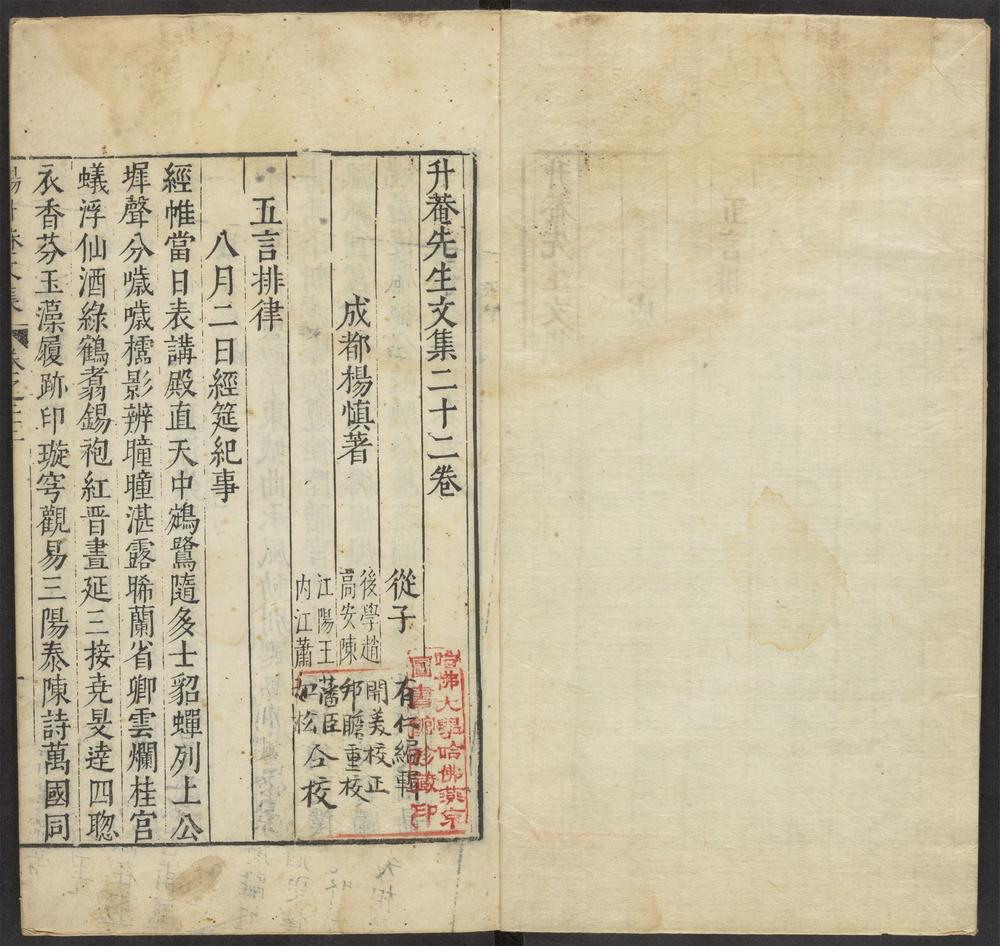 升菴先生文集二十二卷
從子　有仁編輯
成都楊慎著
後學趙　開美校正
高安陳　邦瞻重校
江陽王　藩臣
内江蕭　如松仝校
五言排律
八月二日經筵紀事
經帷當日表講殿直天中鵷鷺隨多士貂蟬列上公
墀聲分噦噦櫺影辨曈曈湛露晞蘭省卿雲爛桂宮
蟻浮仙酒綠鶴翥錫袍紅晋晝延三接堯旻達四聦
衣香芬玉藻履跡印璇穹觀易三陽泰陳詩萬國同
哈佛大學哈佛燕京
圖書館珍藏印